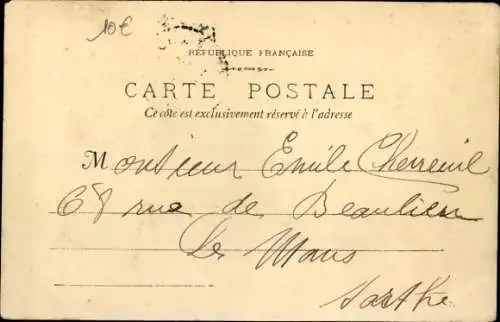 10€
RÉPUBLIQUE FRANÇAISE
CARTE POSTALE
Ce côté est exclusivement réservé à l'adresse
Monsieur Emile Cherreuil
68 rue de Beaulieu
Le Mans
Sarthe